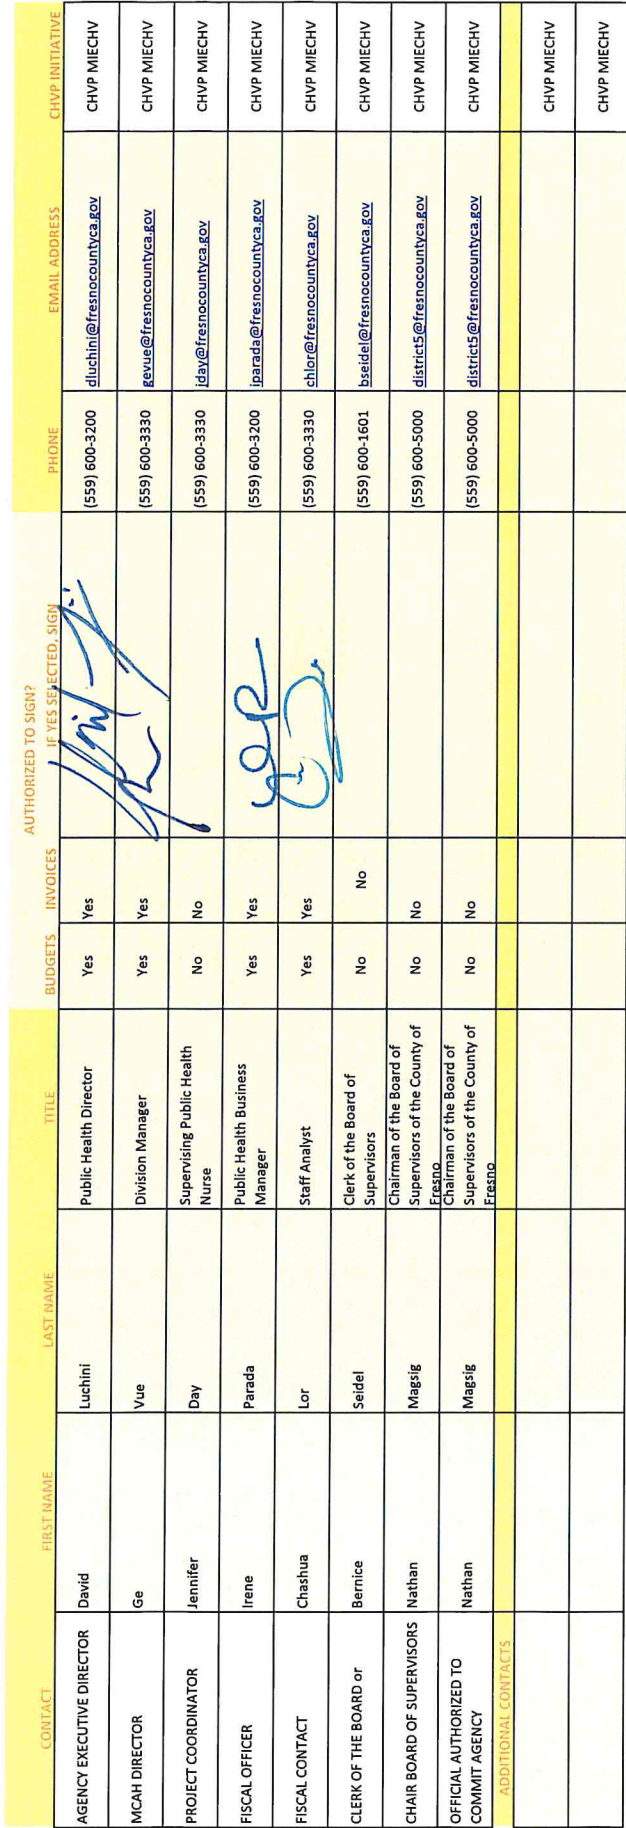 AUTHORIZED TO SIGN?
CONTACT FIRST NAME LAST NAME TITLE BUDGETS INVOICES IF YES SELECTED, SIGN PHONE EMAIL ADDRESS CHVP INITIATIVE
AGENCY EXECUTIVE DIRECTOR David Luchini Public Health Director Yes Yes (559) 600-3200 dluchini@fresnocountyca.gov CHVP MIECHV
MCAH DIRECTOR Ge Vue Division Manager Yes Yes (559) 600-3330 gevue@fresnocountyca.gov CHVP MIECHV
PROJECT COORDINATOR Jennifer Day Supervising Public Health
Nurse No No (559) 600-3330 jday@fresnocountyca.gov CHVP MIECHV
FISCAL OFFICER Irene Parada Public Health Business
Manager Yes Yes (559) 600-3200 iparada@fresnocountyca.gov CHVP MIECHV
FISCAL CONTACT Chashua Lor Staff Analyst Yes Yes (559) 600-3330 chlor@fresnocountyca.gov CHVP MIECHV
CLERK OF THE BOARD or Bernice Seidel Clerk of the Board of
Supervisors No No (559) 600-1601 bseidel@fresnocountyca.gov CHVP MIECHV
CHAIR BOARD OF SUPERVISORS Nathan Magsig Chairman of the Board of
Supervisors of the County of
Fresno No No (559) 600-5000 district5@fresnocountyca.gov CHVP MIECHV
OFFICIAL AUTHORIZED TO
COMMIT AGENCY Nathan Magsig Chairman of the Board of
Supervisors of the County of
Fresno No No (559) 600-5000 district5@fresnocountyca.gov CHVP MIECHV
ADDITIONAL CONTACTS
CHVP MIECHV
CHVP MIECHV